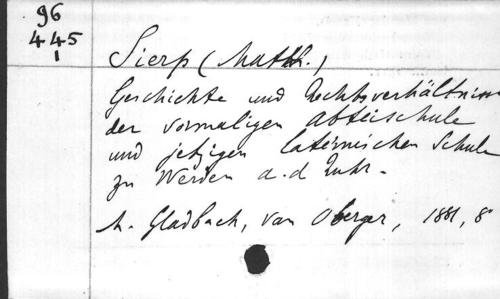 96
445
1
Sierp (Matth.)
Geschichte und Rechtsverhältnisse
der vormaligen Abteischule
und jetzigen lateinischen Schule
zu Werden a. d Ruhr.
M. Gladbach, van Oberger, 1881, 8°